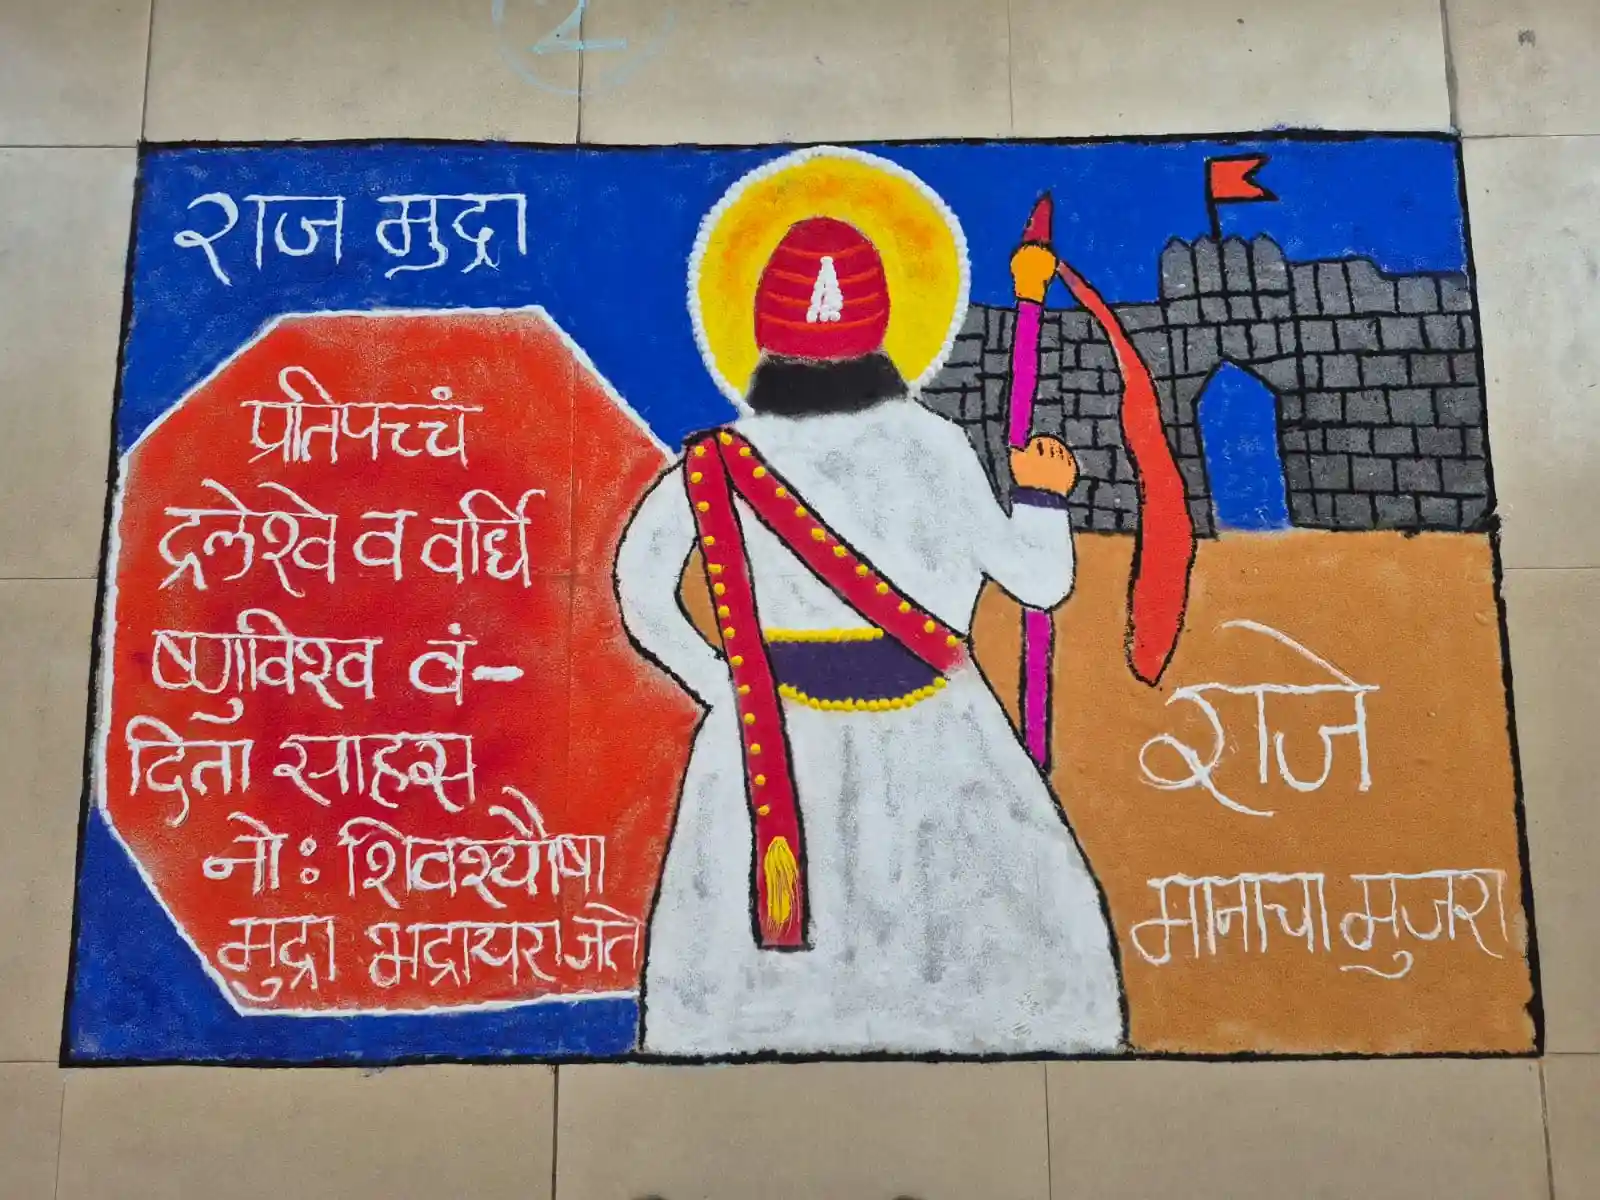 2
राज मुद्रा
प्रतिपच्चं
द्रलेश्वे व वर्धि
ष्णुविश्व वं-
दिता साहस
नो: शिवश्यौषा
मुद्रा भद्रायराजते
राजे
मानाचा मुजरा